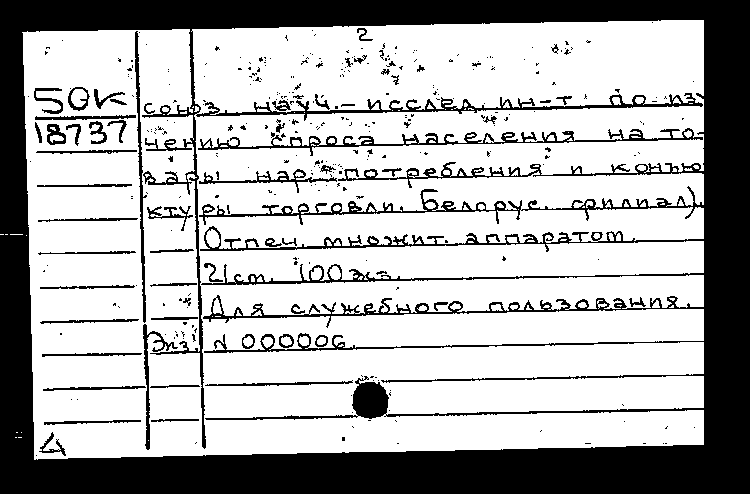 2
50К
18737
союз. науч.-исслед. ин-т по из
чению спроса населения на то-
вары нар. потребления и конъю
ктуры торговли. Белорус. филиал).
Отпеч. множит. аппаратом.
21 ст. 100 экз.
Для служебного пользования.
Экз. N 000006.
4